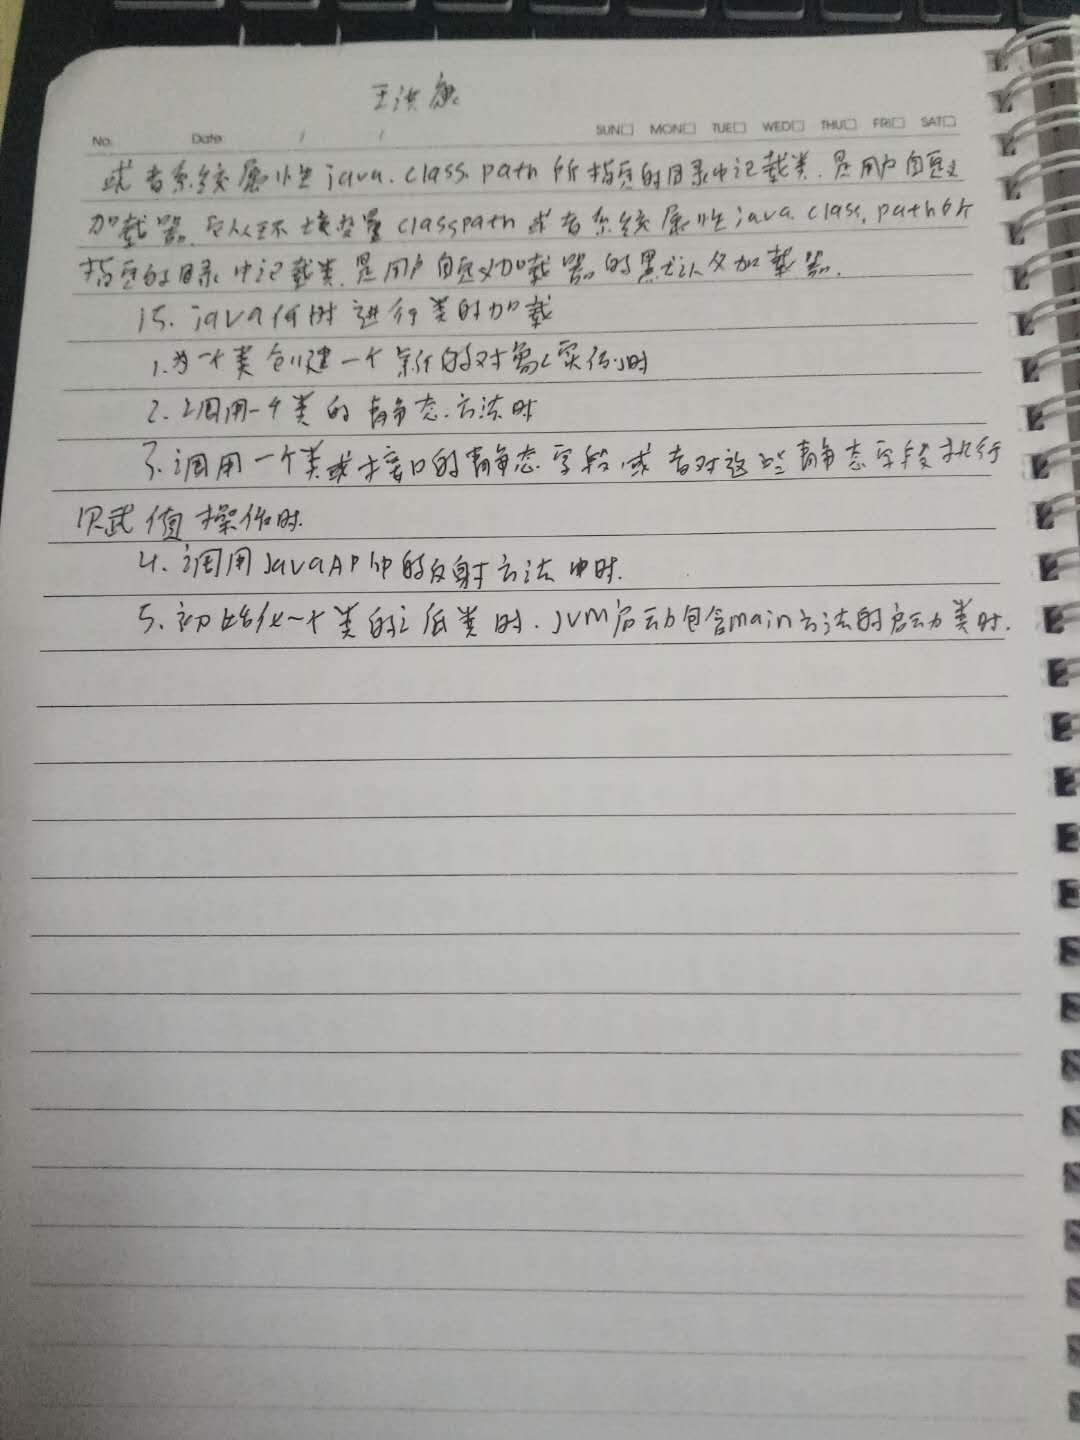 王洪
No. Date / / SUN□ MON□ TUE□ WED□ THU□ FRI□ SAT□
或者系统属性java.class.path所指定的目录中记载类.是用户自定义
加载器.它从环境变量classpath或者系统属性java.class.path所
指定的目录中记载类.是用户自定义加载器的默认父加载器.
15.java何时进行类的加载
1.为一个类创建一个新的对象实例时
2.调用一个类的静态方法时
3.调用一个类或接口的静态字段.或者对这些静态字段执行
贝武值操作时.
4.调用JavaAPI中的反射方法中时.
5.初始化一个类的 类时.JVM启动包含main方法的启动类时.